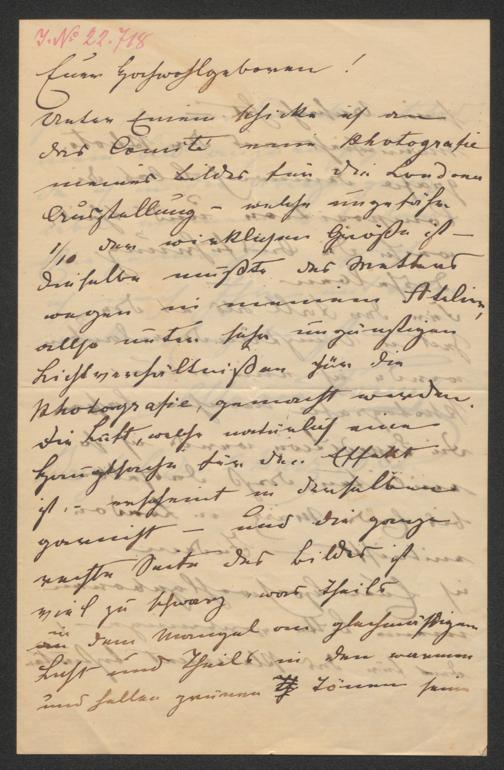 I. № 22.718
Euer Hochwohlgeboren!
Unter Einem schicke ich an
das Comité eine Photografie
meines Bildes für die Londoner
Ausstellung – welche ungefähr
1/10 der wirklichen Größe ist –
dieselbe mußte des Wetters
wegen in meinem Atelier,
allso unter sehr ungünstigen
Lichtverhältnißen für die
Photografie, gemacht werden.
Die Luft, welche natürlich eine
Hauptsache für den Effekt
ist, – erscheint in derselben
garnicht – und die ganze
rechte Seite des Bildes ist
viel zu schwarz, was Theils
in dem Mangel an gleichmäßigen
Licht und Theils in den warmen
und hellen grünen Tönen seine